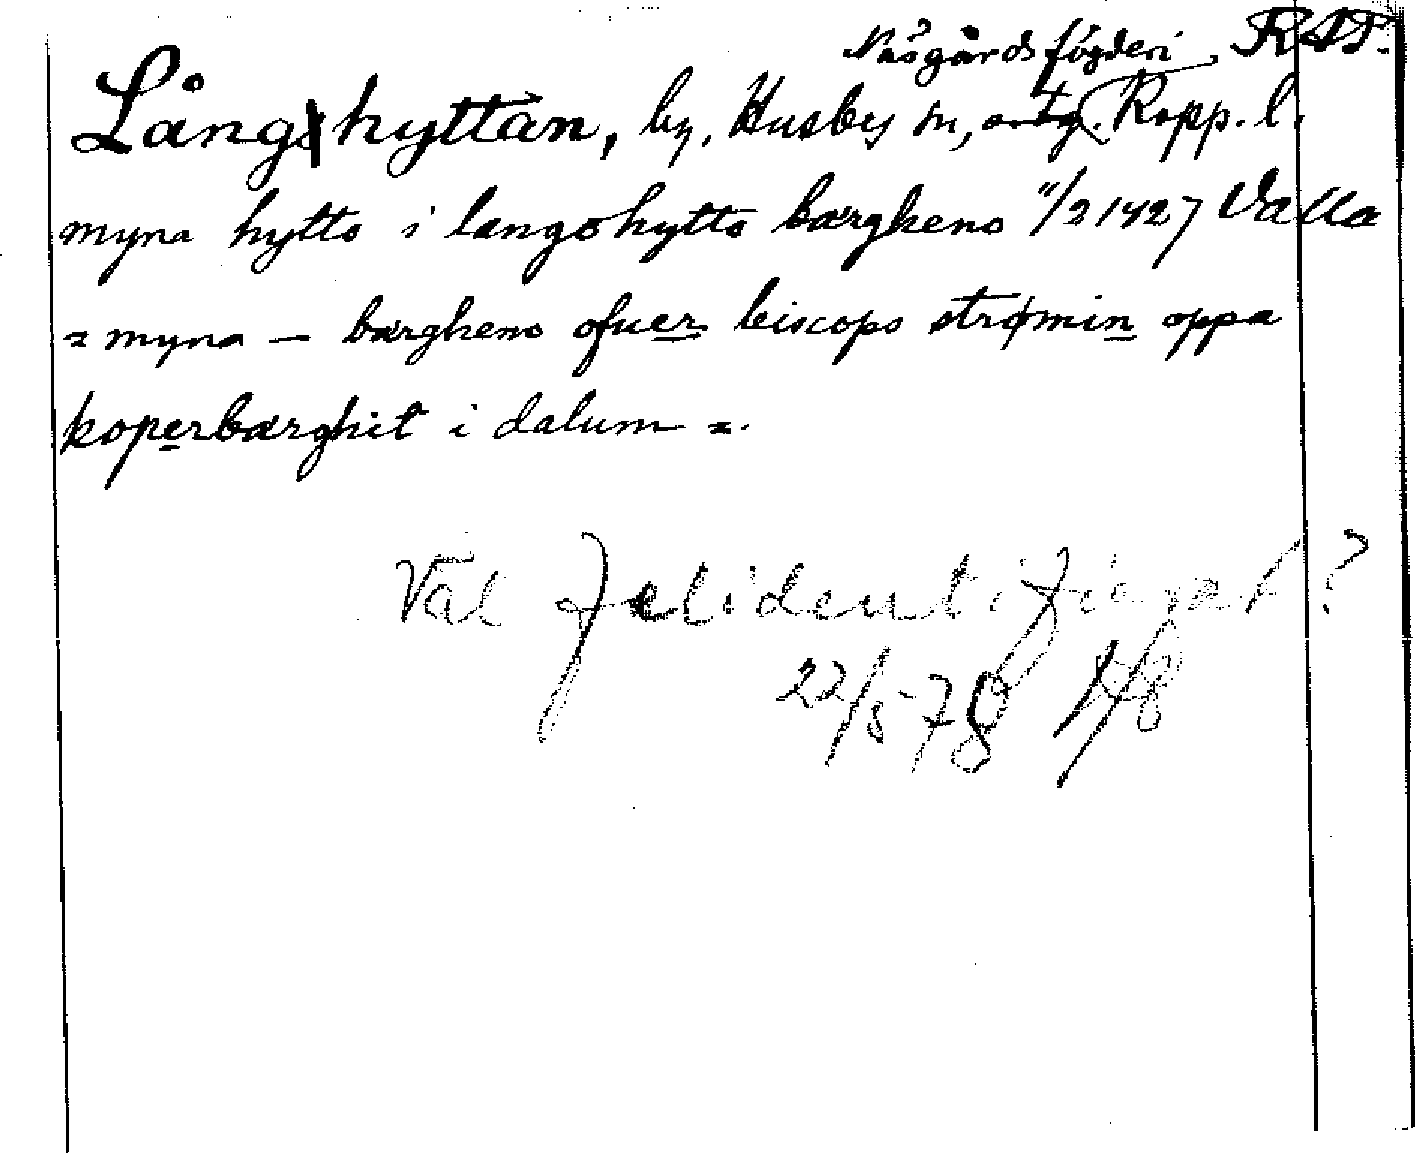 Näsgårds fögderi, RAP.
Långshyttan, by, Husby sn, Kopp. l.
myna hytto i langohytto bærgheno 11/2 1427 Valla
= myna — bærgheno ofuer biscops strømin oppa
koperbærghit i dalum =.
Väl felidentifierat?
22/5 -78